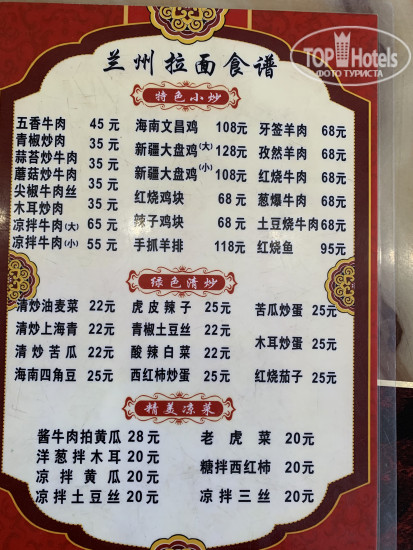 TOP Hotels
ФОТО ТУРИСТА
兰州拉面食谱
特色小炒
五香牛肉 45元
青椒炒肉 35元
蒜苔炒牛肉 35元
蘑菇炒牛肉 35元
尖椒牛肉丝 35元
木耳炒肉 35元
凉拌牛肉(大) 65元
凉拌牛肉(小) 55元
海南文昌鸡 108元
新疆大盘鸡(大) 128元
新疆大盘鸡(小) 108元
红烧鸡块 68元
辣子鸡块 68元
手抓羊排 118元
牙签羊肉 68元
孜然羊肉 68元
红烧牛肉 68元
葱爆牛肉 68元
土豆烧牛肉 68元
红烧鱼 95元
绿色清炒
清炒油麦菜 22元
清炒上海青 22元
清炒苦瓜 22元
海南四角豆 25元
虎皮辣子 25元
青椒土豆丝 22元
酸辣白菜 22元
西红柿炒蛋 25元
苦瓜炒蛋 25元
木耳炒蛋 25元
红烧茄子 25元
精美凉菜
酱牛肉拍黄瓜 28元
洋葱拌木耳 20元
凉拌黄瓜 20元
凉拌土豆丝 20元
老虎菜 20元
糖拌西红柿 20元
凉拌三丝 20元